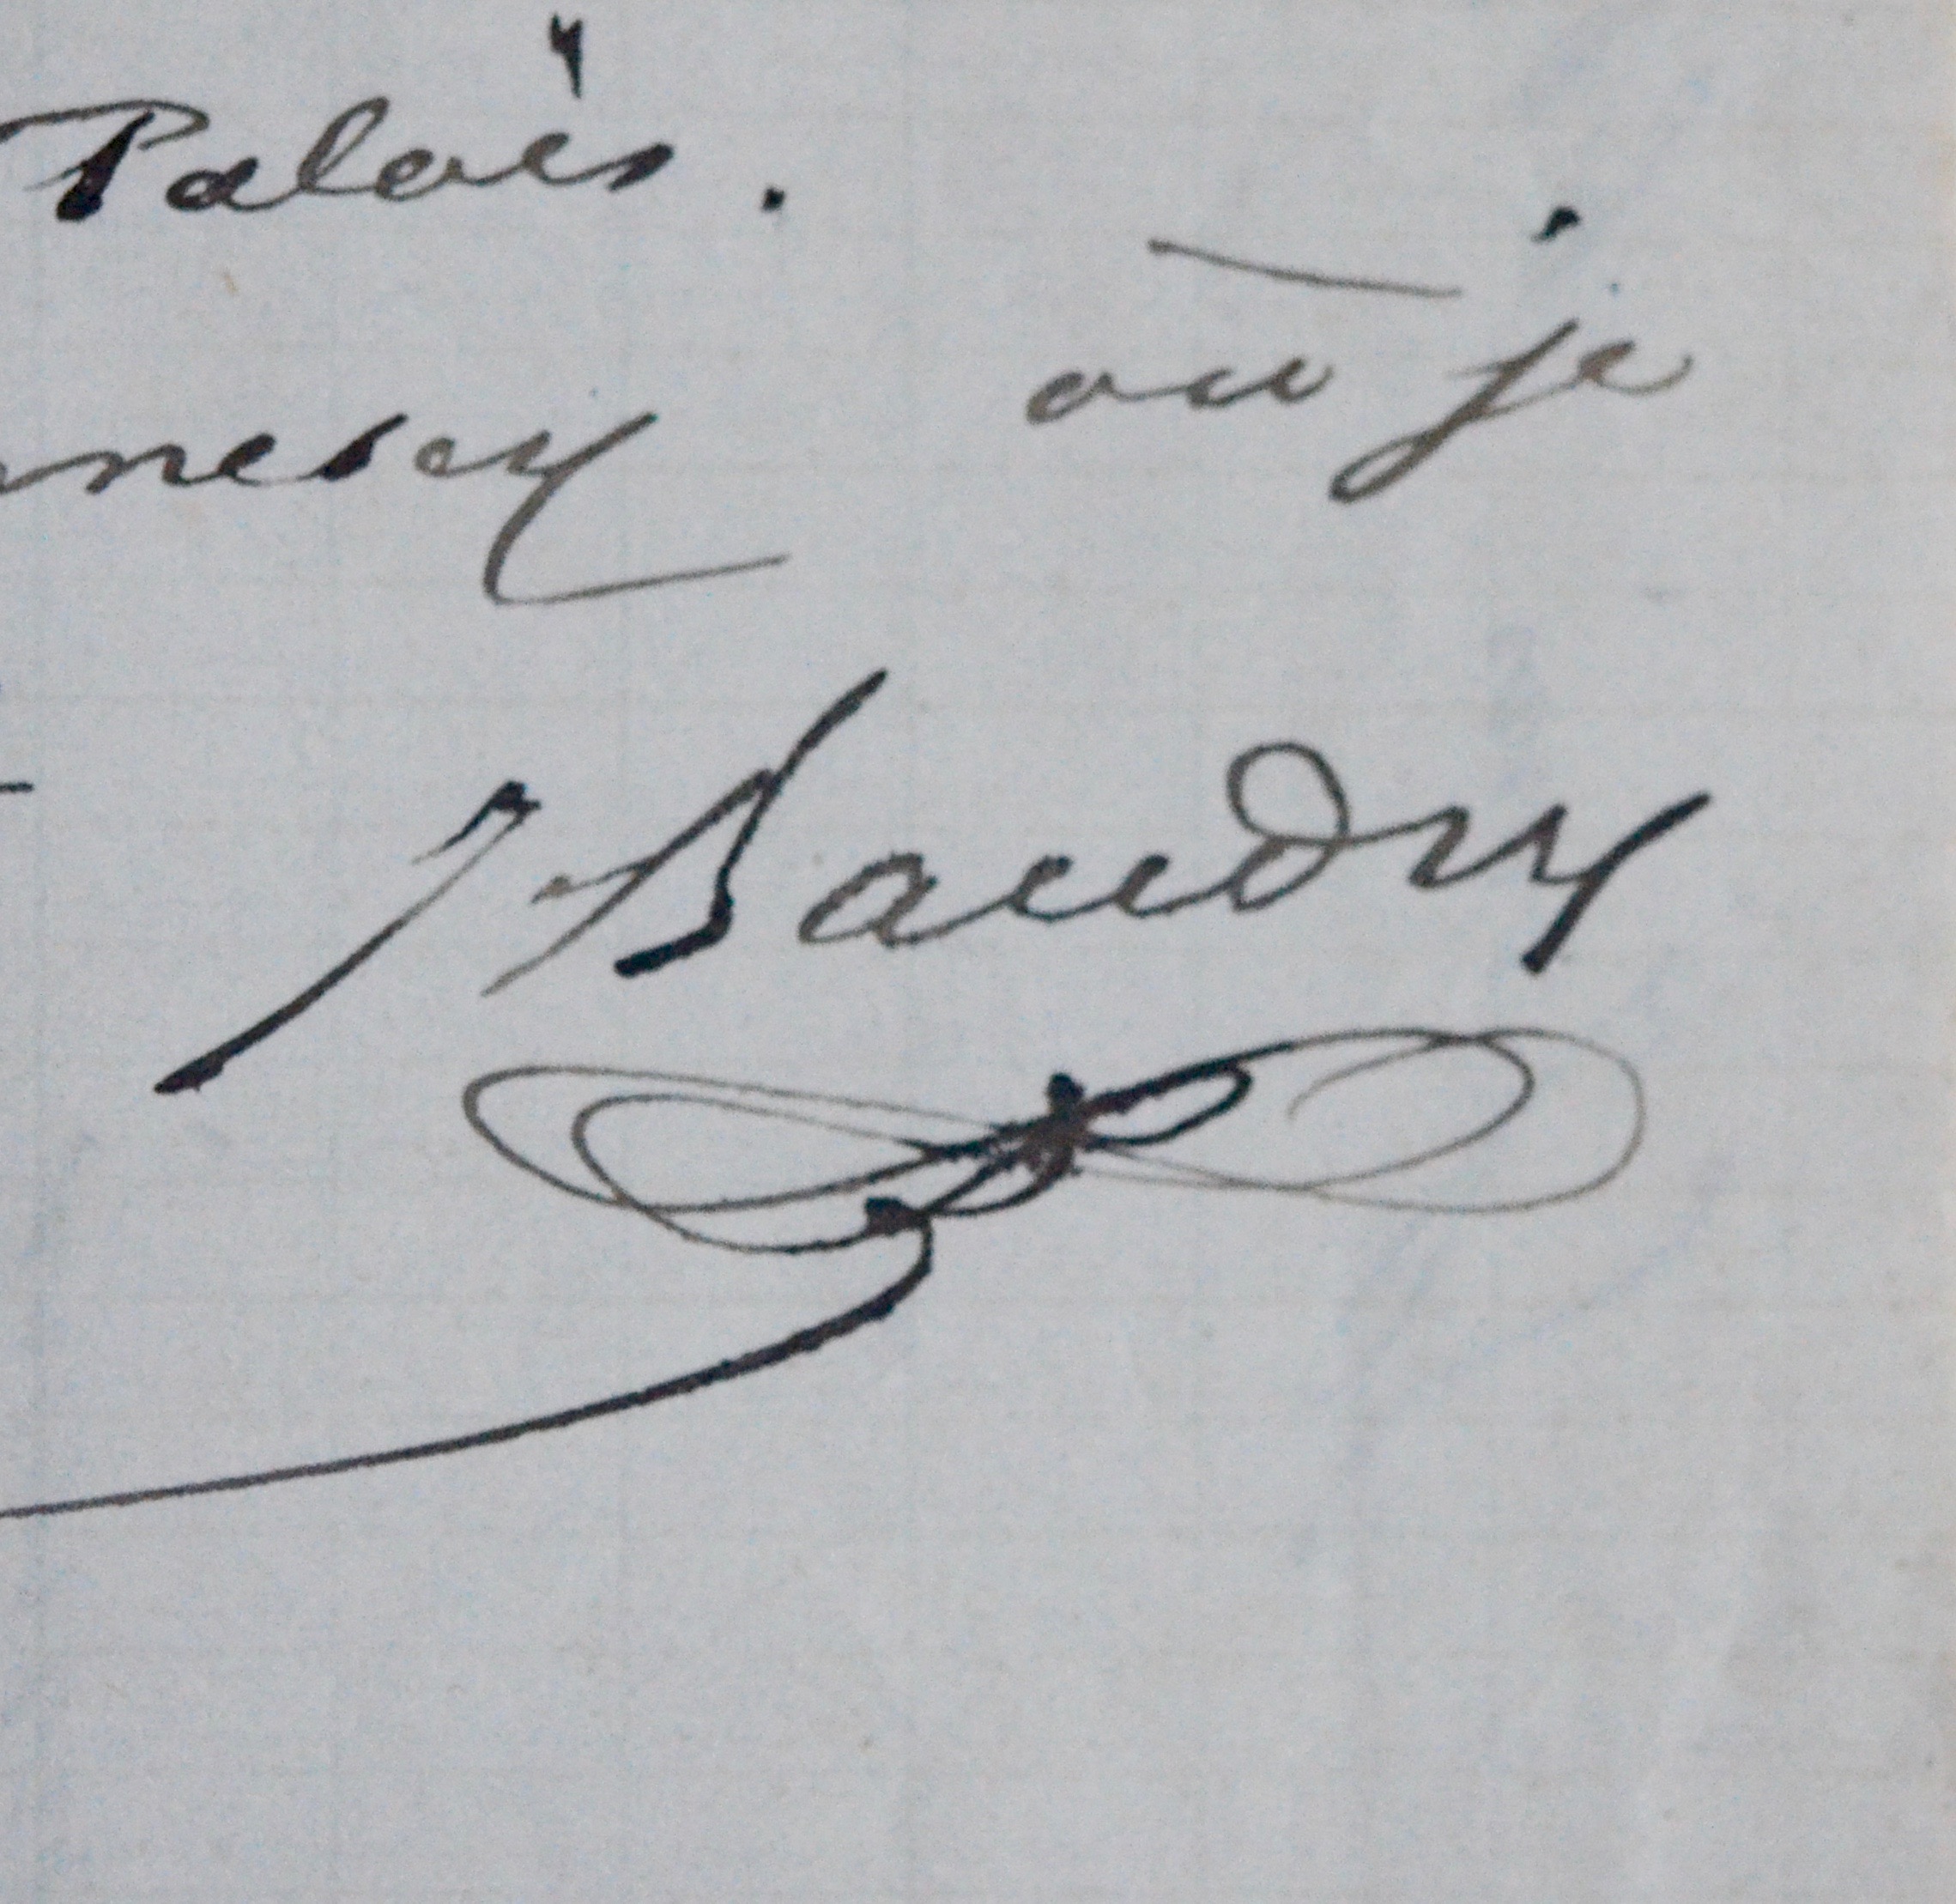 Palais.
où je
nnesey
J Baudry